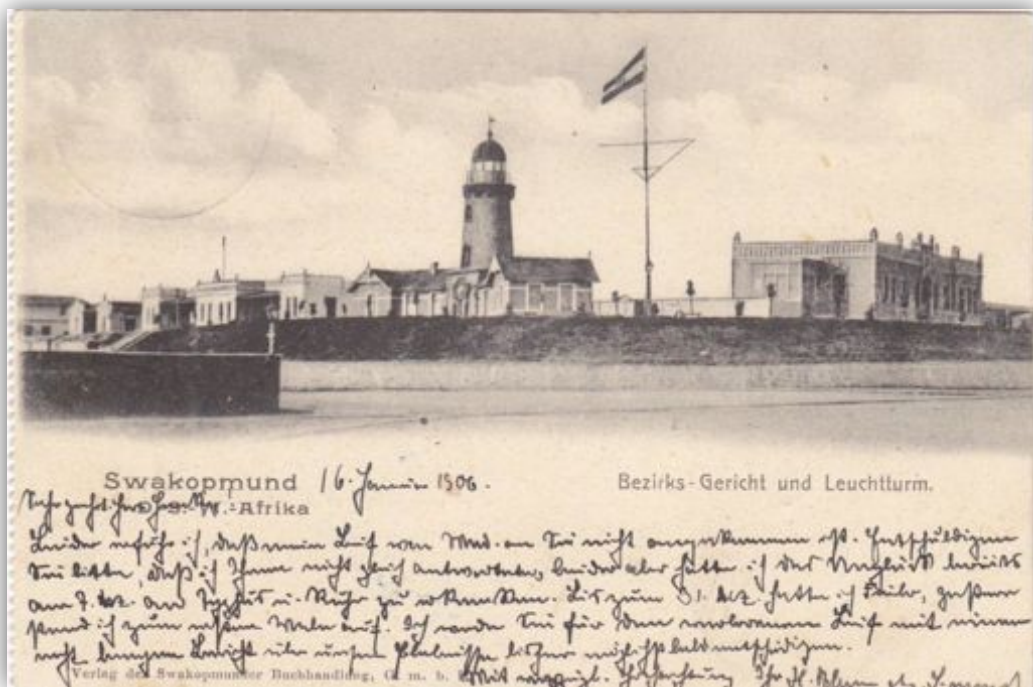 Swakopmund 16. Januar 1906.
D.-S.-W.-Afrika
Bezirks-Gericht und Leuchtturm.
Sehr geehrter Herr
Leider erfuhr ich, daß mein Brief von an Sie nicht angekommen ist. Entschuldigen
Sie bitte, daß ich Ihnen nicht gleich antwortete, leider aber hatte ich das Unglück bereits
am 7. an Typhus u. Ruhr zu erkranken. Bis zum 31. hatte ich Fieber, gestern
stand ich zum ersten Male auf. Ich werde Sie für den verlorenen Brief mit einem
recht langen Bericht über unsere Erlebnisse bisher möglichst bald entschädigen.
Mit vorzügl. Hochachtung Ihr
Verlag der Swakopmunder Buchhandlung, G. m. b.